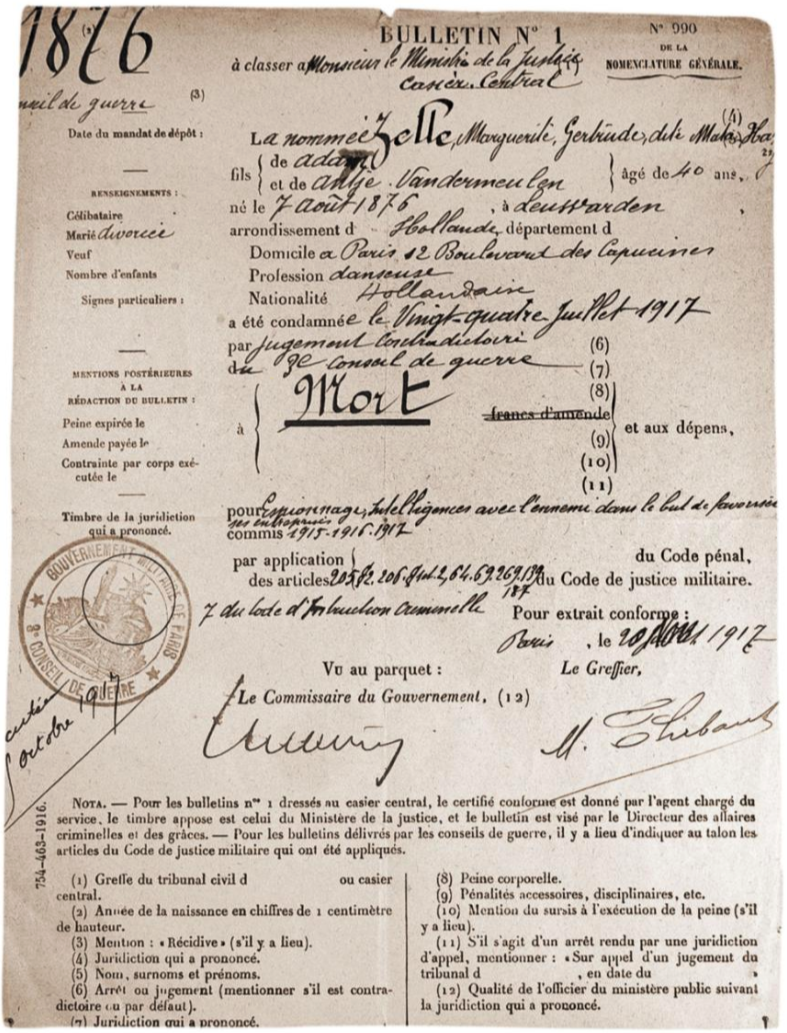 1876
BULLETIN N° 1
N° 990
DE LA
NOMENCLATURE GÉNÉRALE.
à classer a Monsieur le Ministre de la Justice
casier Central
de guerre (3)
Date du mandat de dépôt :
La nommée Zelle, Marguerite, Gertrude, dite Mata Ha (4)
fils { de adam
et de antje Vandermeulen } âgé de 40 ans,
RENSEIGNEMENTS :
né le 7 août 1876, à Leuswarden,
Célibataire
Marié divorcée
arrondissement d Hollande, département d
Veuf
Domicile a Paris, 12 Boulevard des Capucines
Nombre d'enfants
Profession danseuse
Signes particuliers :
Nationalité Hollandaise
a été condamnée le Vingt-quatre Juillet 1917
par jugement Contradictoire (6)
du 3e Conseil de guerre (7)
MENTIONS POSTÉRIEURES
À LA
RÉDACTION DU BULLETIN :
à { Mort (8)
francs d'amende
(9)
(10)
(11) } et aux dépens,
Peine expirée le
Amende payée le
Contrainte par corps exé-
cutée le
Timbre de la juridiction
qui a prononcé.
pour Espionnage, Intelligences avec l'ennemi dans le but de favoriser
ses entreprises
commis 1915-1916-1917
par application { du Code pénal,
des articles 205 206 2, 64, 69, 269, 139 du Code de justice militaire.
187
7 du Code d'Instruction Criminelle
Pour extrait conforme :
Paris, le 1917
GOUVERNEMENT MILITAIRE DE PARIS
CONSEIL DE GUERRE
octobre 1917
Vu au parquet :
Le Greffier,
Le Commissaire du Gouvernement, (12)
M. Thibaut
754-463-1916.
NOTA. — Pour les bulletins nos 1 dressés au casier central, le certifié conforme est donné par l'agent chargé du
service, le timbre appose est celui du Ministère de la justice, et le bulletin est visé par le Directeur des affaires
criminelles et des grâces. — Pour les bulletins délivrés par les conseils de guerre, il y a lieu d'indiquer au talon les
articles du Code de justice militaire qui ont été appliqués.
(1) Greffe du tribunal civil d ou casier
central.
(2) Année de la naissance en chiffres de 1 centimètre
de hauteur.
(3) Mention : « Récidive » (s'il y a lieu).
(4) Juridiction qui a prononcé.
(5) Nom, surnoms et prénoms.
(6) Arrêt ou jugement (mentionner s'il est contra-
dictoire ou par défaut).
(7) Juridiction qui a prononcé.
(8) Peine corporelle.
(9) Pénalités accessoires, disciplinaires, etc.
(10) Mention du sursis à l'exécution de la peine (s'il
y a lieu).
(11) S'il s'agit d'un arrêt rendu par une juridiction
d'appel, mentionner : « Sur appel d'un jugement du
tribunal d , en date du »
(12) Qualité de l'officier du ministère public suivant
la juridiction qui a prononcé.